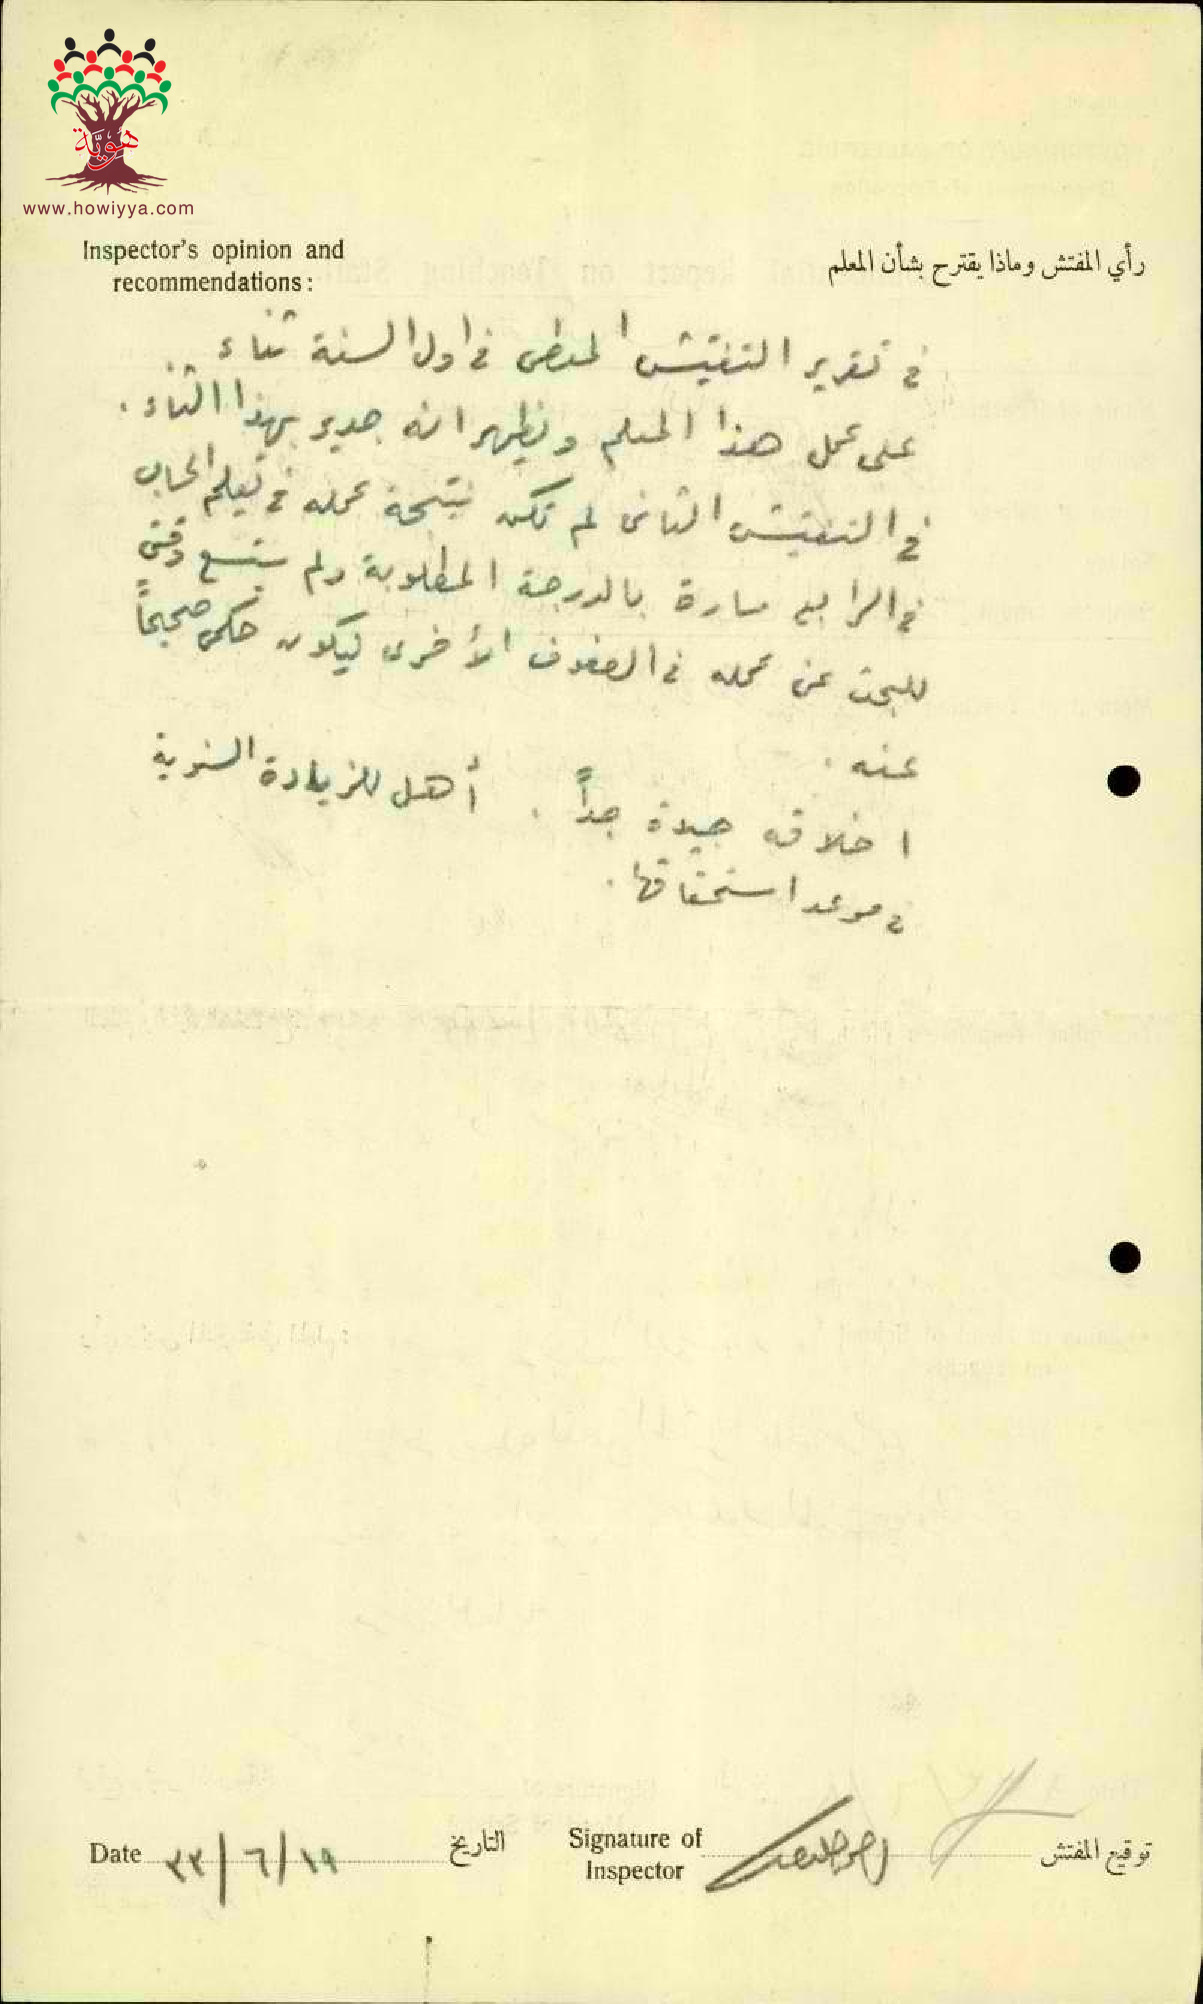 هوية
www.howiyya.com
Inspector's opinion and
recommendations:
رأي المفتش وماذا يقترح بشأن المعلم
في تقرير التفتيش المعطى في اول السنة ثناء
على عمل هذا المعلم ويظهر انه جدير بهذا الثناء.
في التفتيش الثاني لم تكن نتيجة عمله في تعليم الحساب
في الرابع سارة بالدرجة المطلوبة ولم يتسع وقتي
للبحث عن عمله في الصفوف الأخرى ليكون حكمي صحيحاً
عنه.
اخلاقه جيدة جداً. أهل للزيادة السنوية
في موعد استحقاقها.
Date ١٩/٦/٣٣ التاريخ
Signature of
Inspector
توقيع المفتش